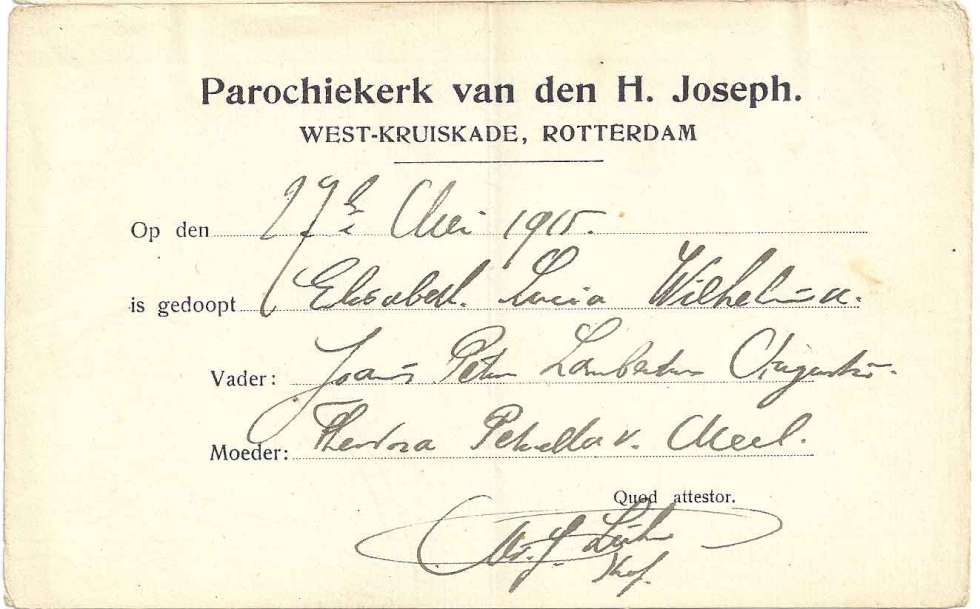 Parochiekerk van den H. Joseph.
WEST-KRUISKADE, ROTTERDAM
Op den 27 Mei 1915.
is gedoopt Elisabeth. Lucia Wilhelmina.
Vader: Joans Petrus Lambertus
Moeder: Theodora Petronella v. Meel.
Quod attestor.